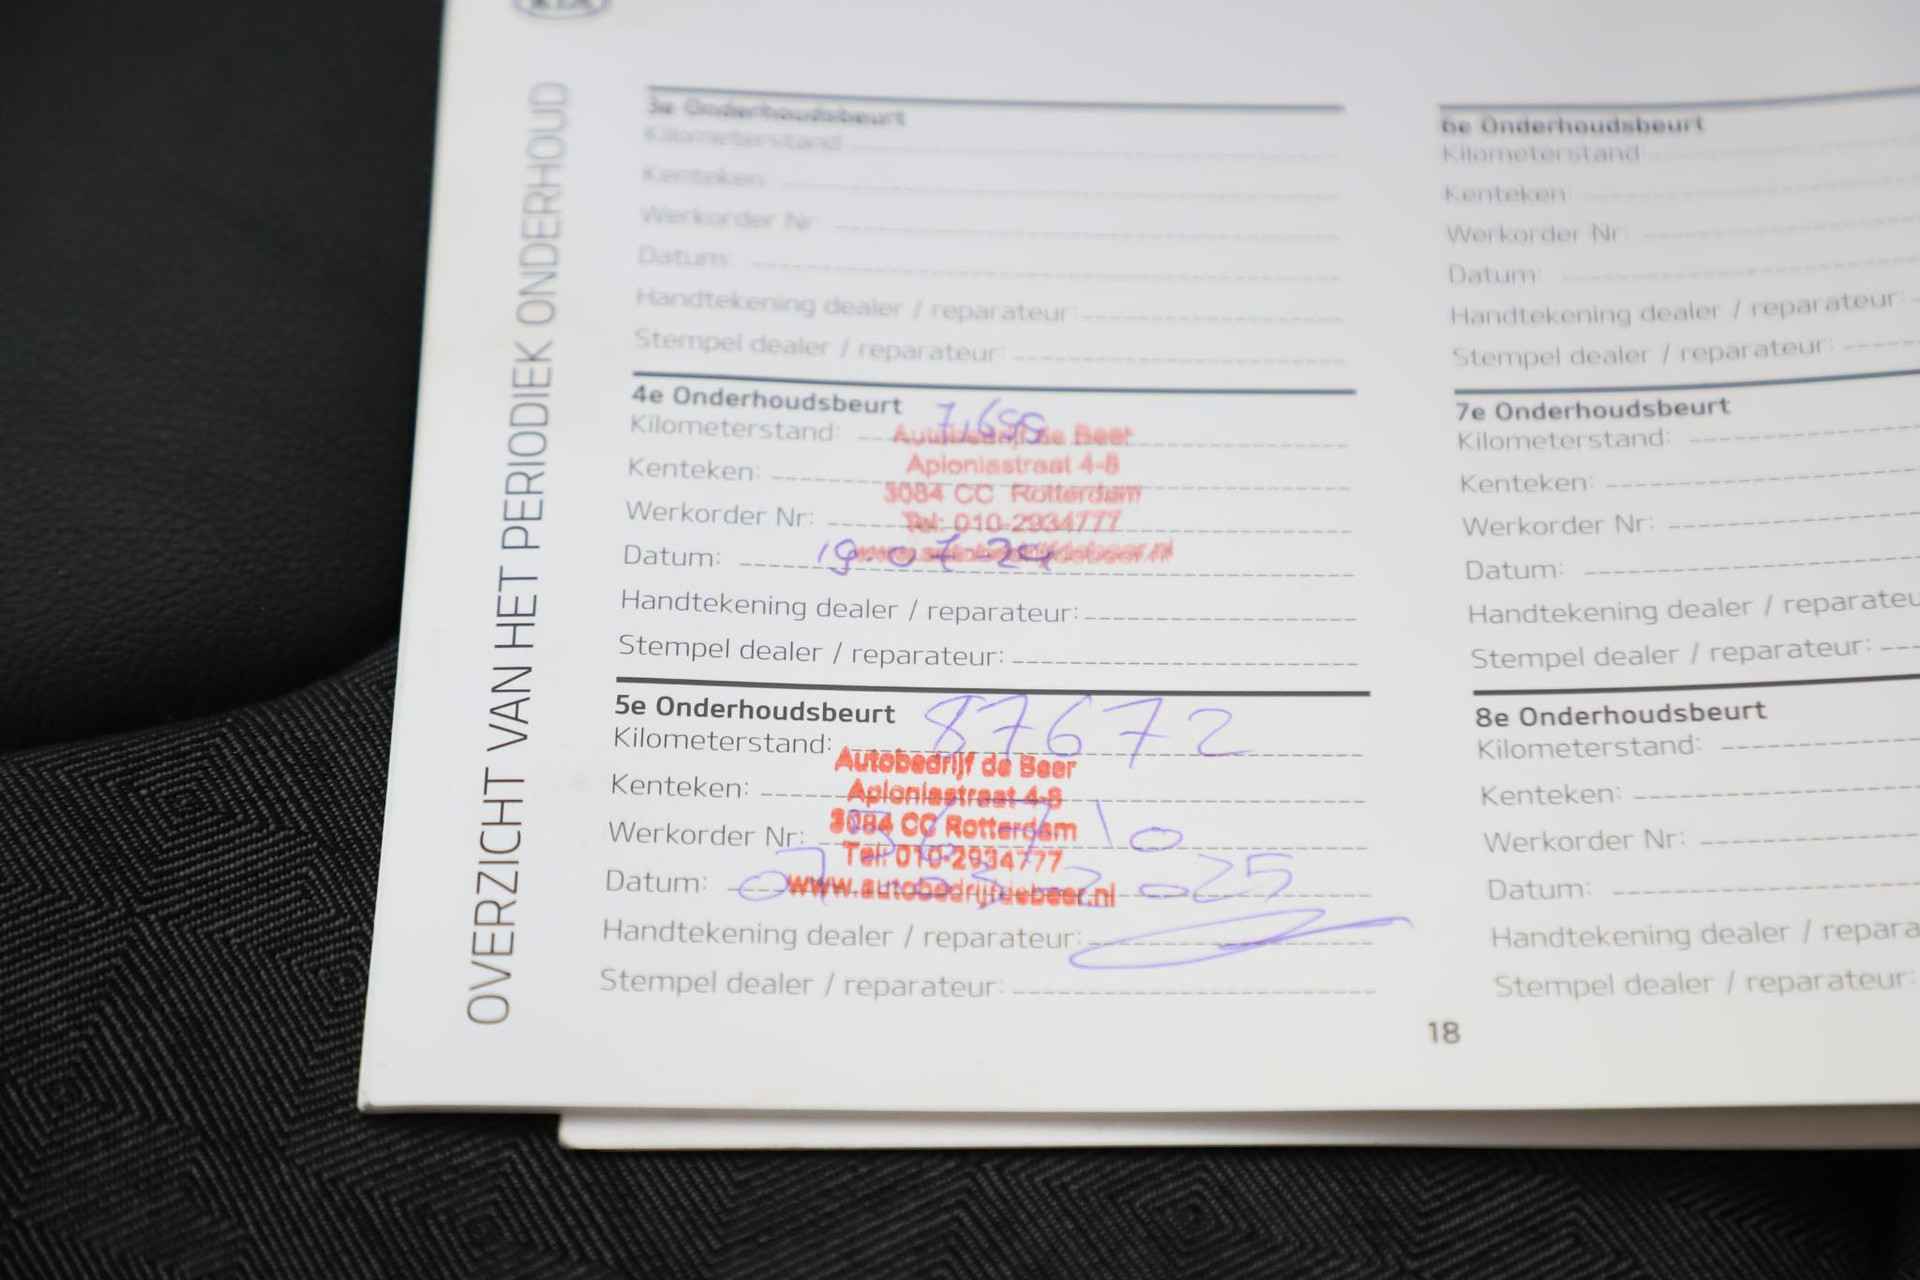 KIA
OVERZICHT VAN HET PERIODIEK ONDERHOUD
3e Onderhoudsbeurt
Kilometerstand:
Kenteken:
Werkorder Nr:
Datum:
Handtekening dealer / reparateur:
Stempel dealer / reparateur:
4e Onderhoudsbeurt
Kilometerstand:
Autobedrijf de Beer
Kenteken:
Aploniastraat 4-8
3084 CC Rotterdam
Werkorder Nr:
Tel: 010-2934777
www.autobedrijfdebeer.nl
Datum: 19-07-24
Handtekening dealer / reparateur:
Stempel dealer / reparateur:
5e Onderhoudsbeurt
Kilometerstand: 87672
Autobedrijf de Beer
Kenteken:
Aploniastraat 4-8
3084 CC Rotterdam
Werkorder Nr:
Tel: 010-2934777
www.autobedrijfdebeer.nl
Datum: 07-03-2025
Handtekening dealer / reparateur:
Stempel dealer / reparateur:
6e Onderhoudsbeurt
Kilometerstand:
Kenteken:
Werkorder Nr:
Datum:
Handtekening dealer / reparateur:
Stempel dealer / reparateur:
7e Onderhoudsbeurt
Kilometerstand:
Kenteken:
Werkorder Nr:
Datum:
Handtekening dealer / reparateu
Stempel dealer / reparateur:
8e Onderhoudsbeurt
Kilometerstand:
Kenteken:
Werkorder Nr:
Datum:
Handtekening dealer / repara
Stempel dealer / reparateur:
18